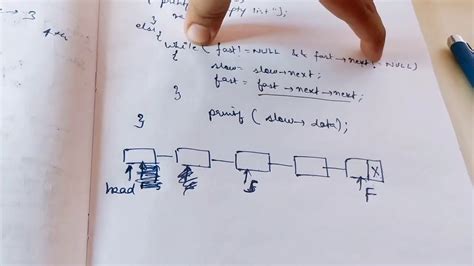 → 3
}
empty list");
}
else{
while ( fast != NULL && fast → next != NULL)
{
slow = slow → next;
fast = fast → next → next;
}
printf ( slow → data);
}
X
head
S
F